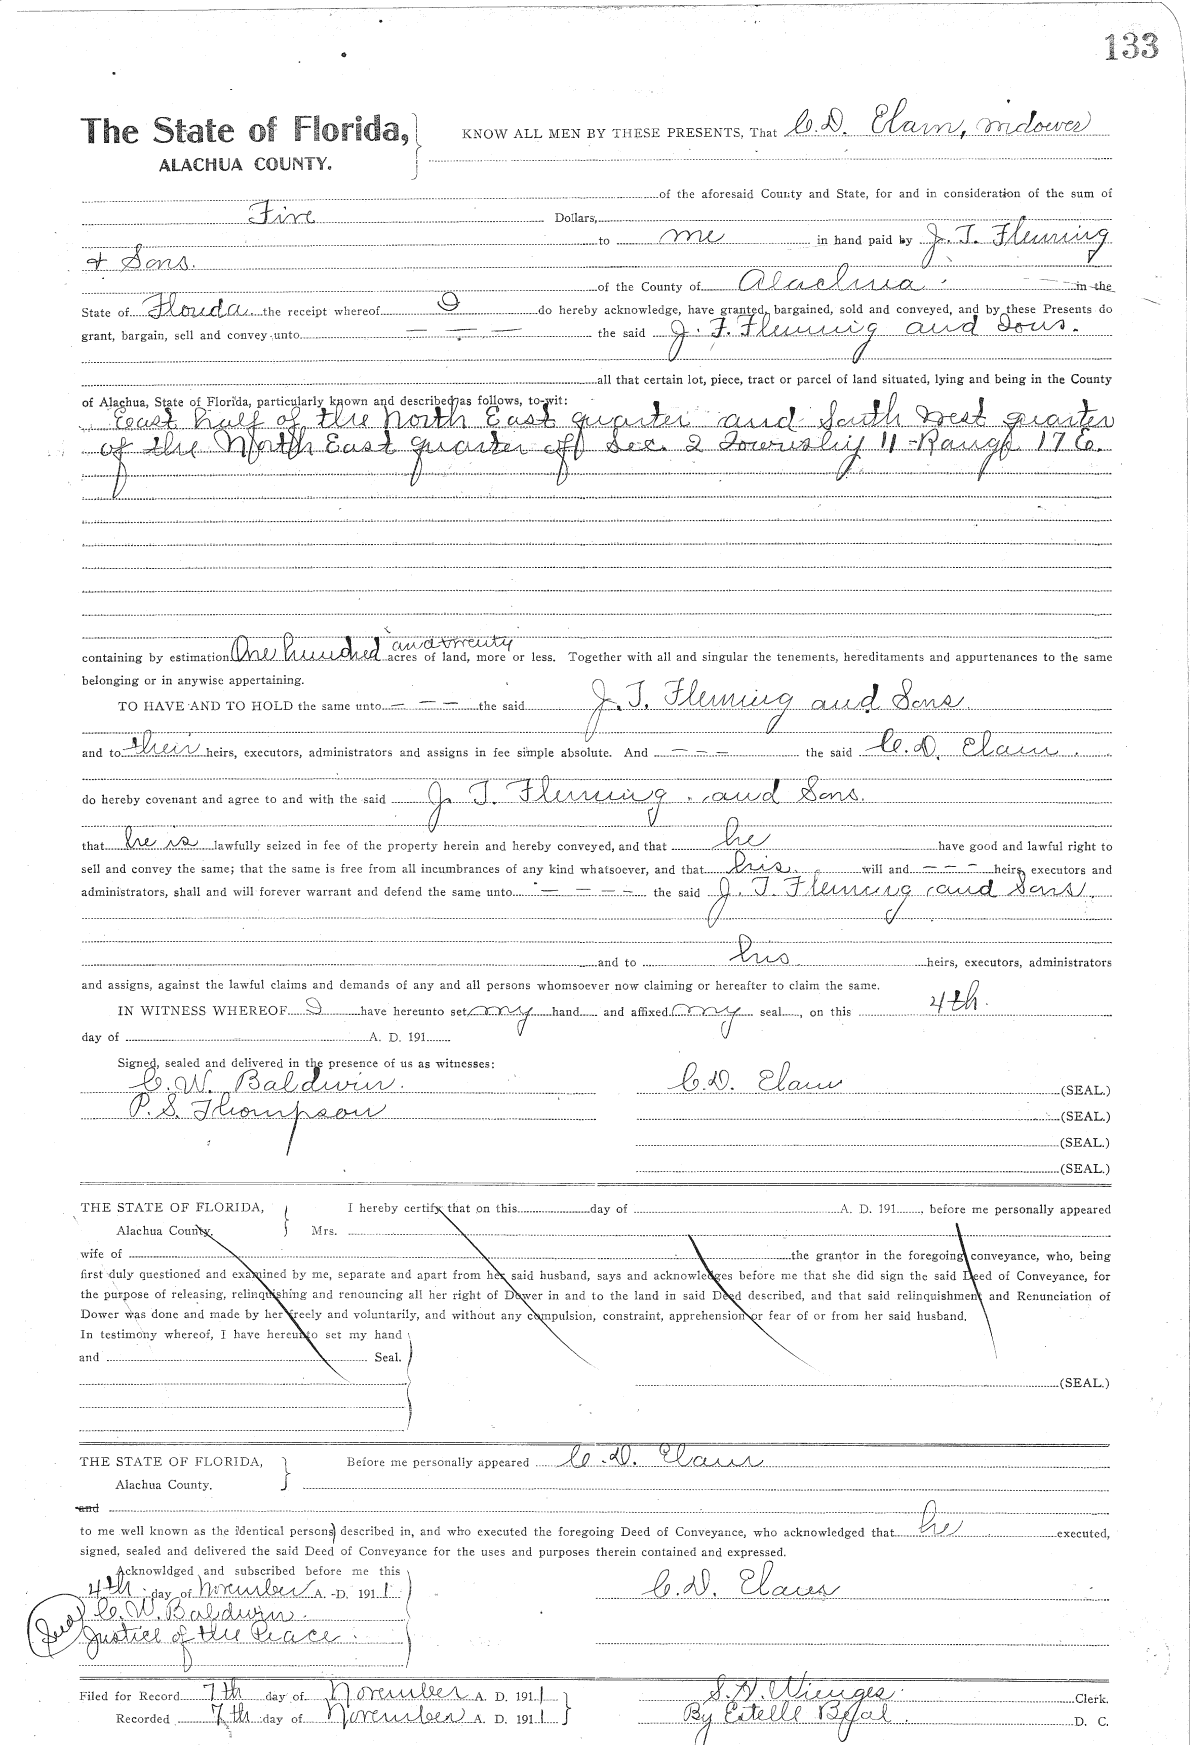 133
The State of Florida, KNOW ALL MEN BY THESE PRESENTS, That C. D. Elam, widower
ALACHUA COUNTY.
of the aforesaid County and State, for and in consideration of the sum of
Five Dollars,
to me in hand paid by J. T. Fleming
& Sons.
of the County of Alachua in the
State of Florida the receipt whereof I do hereby acknowledge, have granted, bargained, sold and conveyed, and by these Presents do
grant, bargain, sell and convey unto — — — the said J. T. Fleming and Sons.
all that certain lot, piece, tract or parcel of land situated, lying and being in the County
of Alachua, State of Florida, particularly known and described as follows, to-wit:
East half of the North East quarter and South West quarter
of the North East quarter of Sec. 2 Township 11 Range 17 E.
and twenty
containing by estimation One hundred acres of land, more or less. Together with all and singular the tenements, hereditaments and appurtenances to the same
belonging or in anywise appertaining.
TO HAVE AND TO HOLD the same unto — — — the said J. T. Fleming and Sons
and to their heirs, executors, administrators and assigns in fee simple absolute. And — — — the said C. D. Elam.
do hereby covenant and agree to and with the said J. T. Fleming and Sons.
that he is lawfully seized in fee of the property herein and hereby conveyed, and that he have good and lawful right to
sell and convey the same; that the same is free from all incumbrances of any kind whatsoever, and that his will and — — — heirs, executors and
administrators, shall and will forever warrant and defend the same unto — — — the said J. T. Fleming and Sons.
and to his heirs, executors, administrators
and assigns, against the lawful claims and demands of any and all persons whomsoever now claiming or hereafter to claim the same.
IN WITNESS WHEREOF I have hereunto set my hand and affixed my seal, on this 4th.
day of A. D. 191
Signed, sealed and delivered in the presence of us as witnesses:
C. W. Baldwin. C. D. Elam (SEAL.)
P. S. Thompson (SEAL.)
(SEAL.)
(SEAL.)
THE STATE OF FLORIDA, I hereby certify that on this day of A. D. 191, before me personally appeared
Alachua County. Mrs.
wife of the grantor in the foregoing conveyance, who, being
first duly questioned and examined by me, separate and apart from her said husband, says and acknowledges before me that she did sign the said Deed of Conveyance, for
the purpose of releasing, relinquishing and renouncing all her right of Dower in and to the land in said Deed described, and that said relinquishment and Renunciation of
Dower was done and made by her freely and voluntarily, and without any compulsion, constraint, apprehension or fear of or from her said husband.
In testimony whereof, I have hereunto set my hand
and Seal.
(SEAL.)
THE STATE OF FLORIDA, Before me personally appeared C. D. Elam
Alachua County.
and
to me well known as the identical persons described in, and who executed the foregoing Deed of Conveyance, who acknowledged that he executed,
signed, sealed and delivered the said Deed of Conveyance for the uses and purposes therein contained and expressed.
Acknowldged and subscribed before me this
4th day of November A. D. 1911 C. D. Elam
C. W. Baldwin.
Seal Justice of the Peace.
Filed for Record 7th day of November A. D. 1911 S. H. Wienges Clerk.
Recorded 7th day of November A. D. 1911 By Estelle D. C.